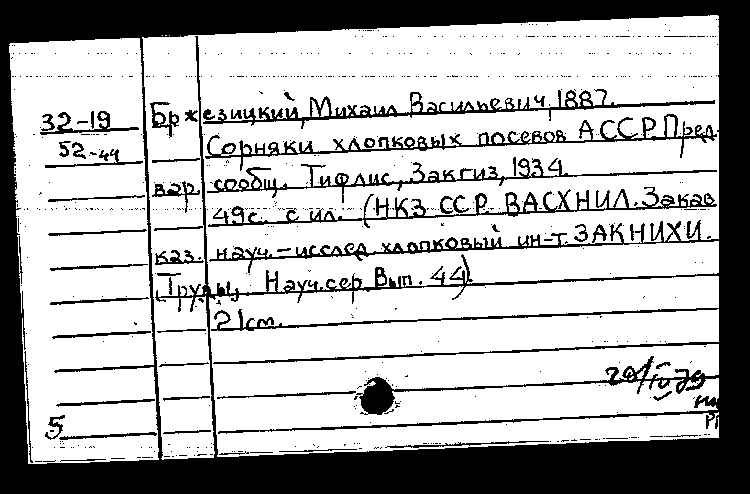 32-19 Бржезицкий, Михаил Васильевич, 1887.
52-44 Сорняки хлопковых посевов АССР. Пред-
вар. сообщ. Тифлис, Закгиз, 1934.
49с. с ил. (НКЗ ССР. ВАСХНИЛ. Закав
каз. науч.-исслед. хлопковый ин-т. ЗАКНИХИ.
Труды, Науч. сер. Вып. 44).
21см.
5